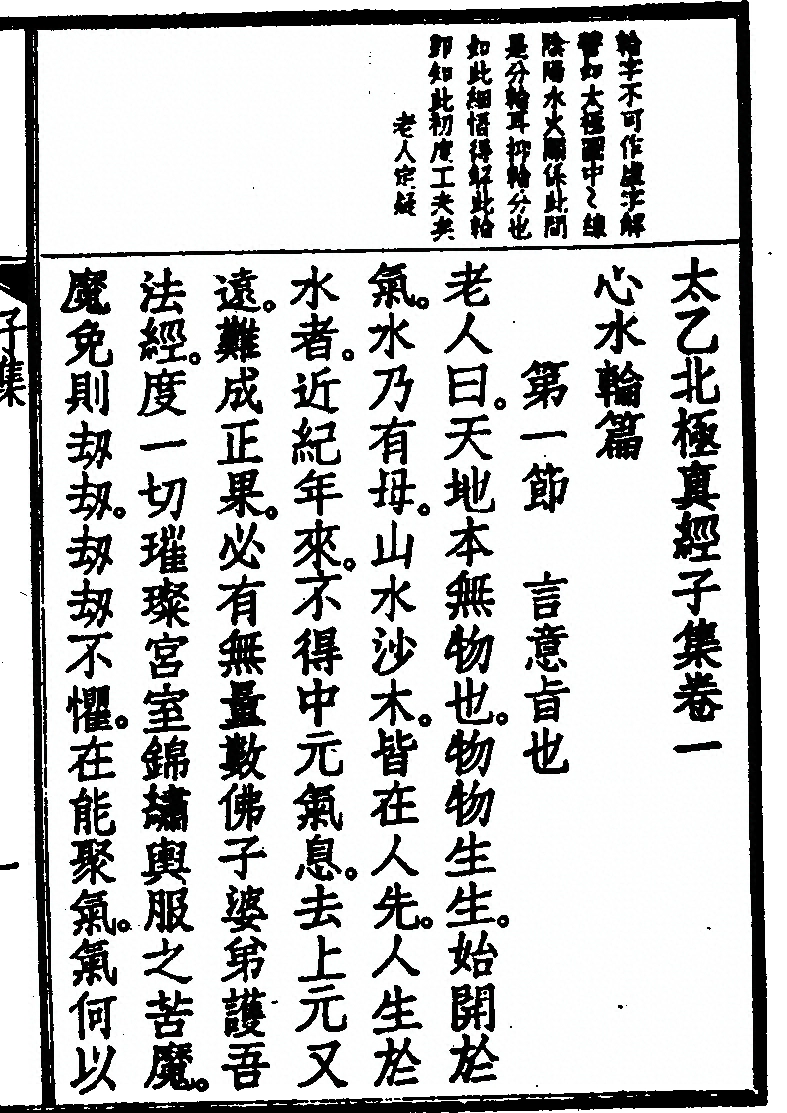 輪字不可作虛字解
譬如太極圖中〻線
陰陽水火關係此間
是分輪耳抑輪分也
如此細悟得解此輪
即知此初度工夫矣
老人定疑
太乙北極真經子集卷一
心水輪篇
第一節　言意旨也
老人曰。天地本無物也。物物生生。始開於
氣。水乃有母。山水沙木。皆在人先。人生於
水者。近紀年來。不得中元氣息。去上元又
遠。難成正果。必有無量數佛子婆弟護吾
法經。度一切璀璨宮室錦繡輿服之苦魔。
魔免則刧刧。刧刧不懼。在能聚氣。氣何以
子集
一